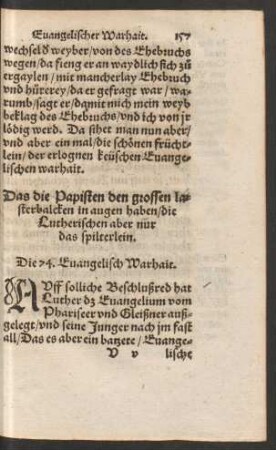 Euangelischer Warhait. 157
wechseld weyber/von des Ehebruchs
wegen/da fieng er an waydlich sich zů
ergaylen/mit mancherlay Ehebruch
vnd hůrerey/da er gefragt war/wa-
rumb/sagt er/damit mich mein weyb
beklag des Ehebruchs/vnd ich von jr
lödig werd. Da sihet man nun aber/
vnd aber ein mal/die schönen frücht-
lein/der erlognen keüschen Euange-
lischen warhait.
Das die Papisten den grossen la-
sterbalcken in augen haben/die
Lutherischen aber nur
das spilterlein.
Die 74. Euangelisch Warhait.
AVff solliche Beschlußred hat
Luther dz Euangelium vom
Phariseer vnd Gleißner auß-
gelegt/vnd seine Junger nach jm fast
all/Das es aber ein batzete/Euange-
V v lische